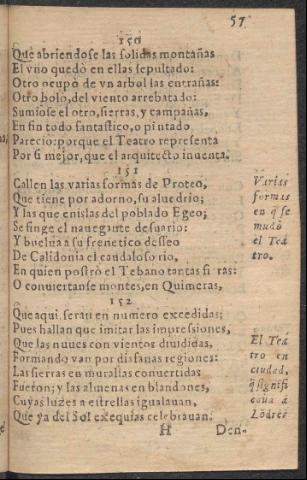 57
150
Que abriendose las solidas montañas
El vno quedò en ellas sepultado:
Otro ocupò de vn arbol las entrañas:
Otro bolò, del viento arrebatado:
Sumiose el otro, sierras, y campañas,
En fin todo fantastico, o pintado
Pareciò: porque el Teatro representa
Por si mejor, que el arquitecto inuenta.
151
Callen las varias formas de Proteo,
Que tiene por adorno, su aluedrio;
Y las que enislas del poblado Egeo;
Se finge el nauegante desuario:
Y buelua a su frenetico desseo
De Calidonia el caudaloso rio,
En quien postrò el Tebano tantas fi ras:
O conuiertanse montes, en Quimeras,
Varias
formas
en q̃ se
mudò
el Teá
tro.
152
Que aqui seran en numero excedidas;
Pues hallan que imitar las impressiones,
Que las nuues con vientos diuididas,
Formando van por diafanas regiones:
Las sierras en murallas conuertidas
Fueron; y las almenas en blandones,
Cuyas luzes a estrellas igualauan,
Que ya del Sol exequias celebrauan.
El Teá
tro en
ciudad,
q̃ signifi
caua á
Lōdres
H
Den-